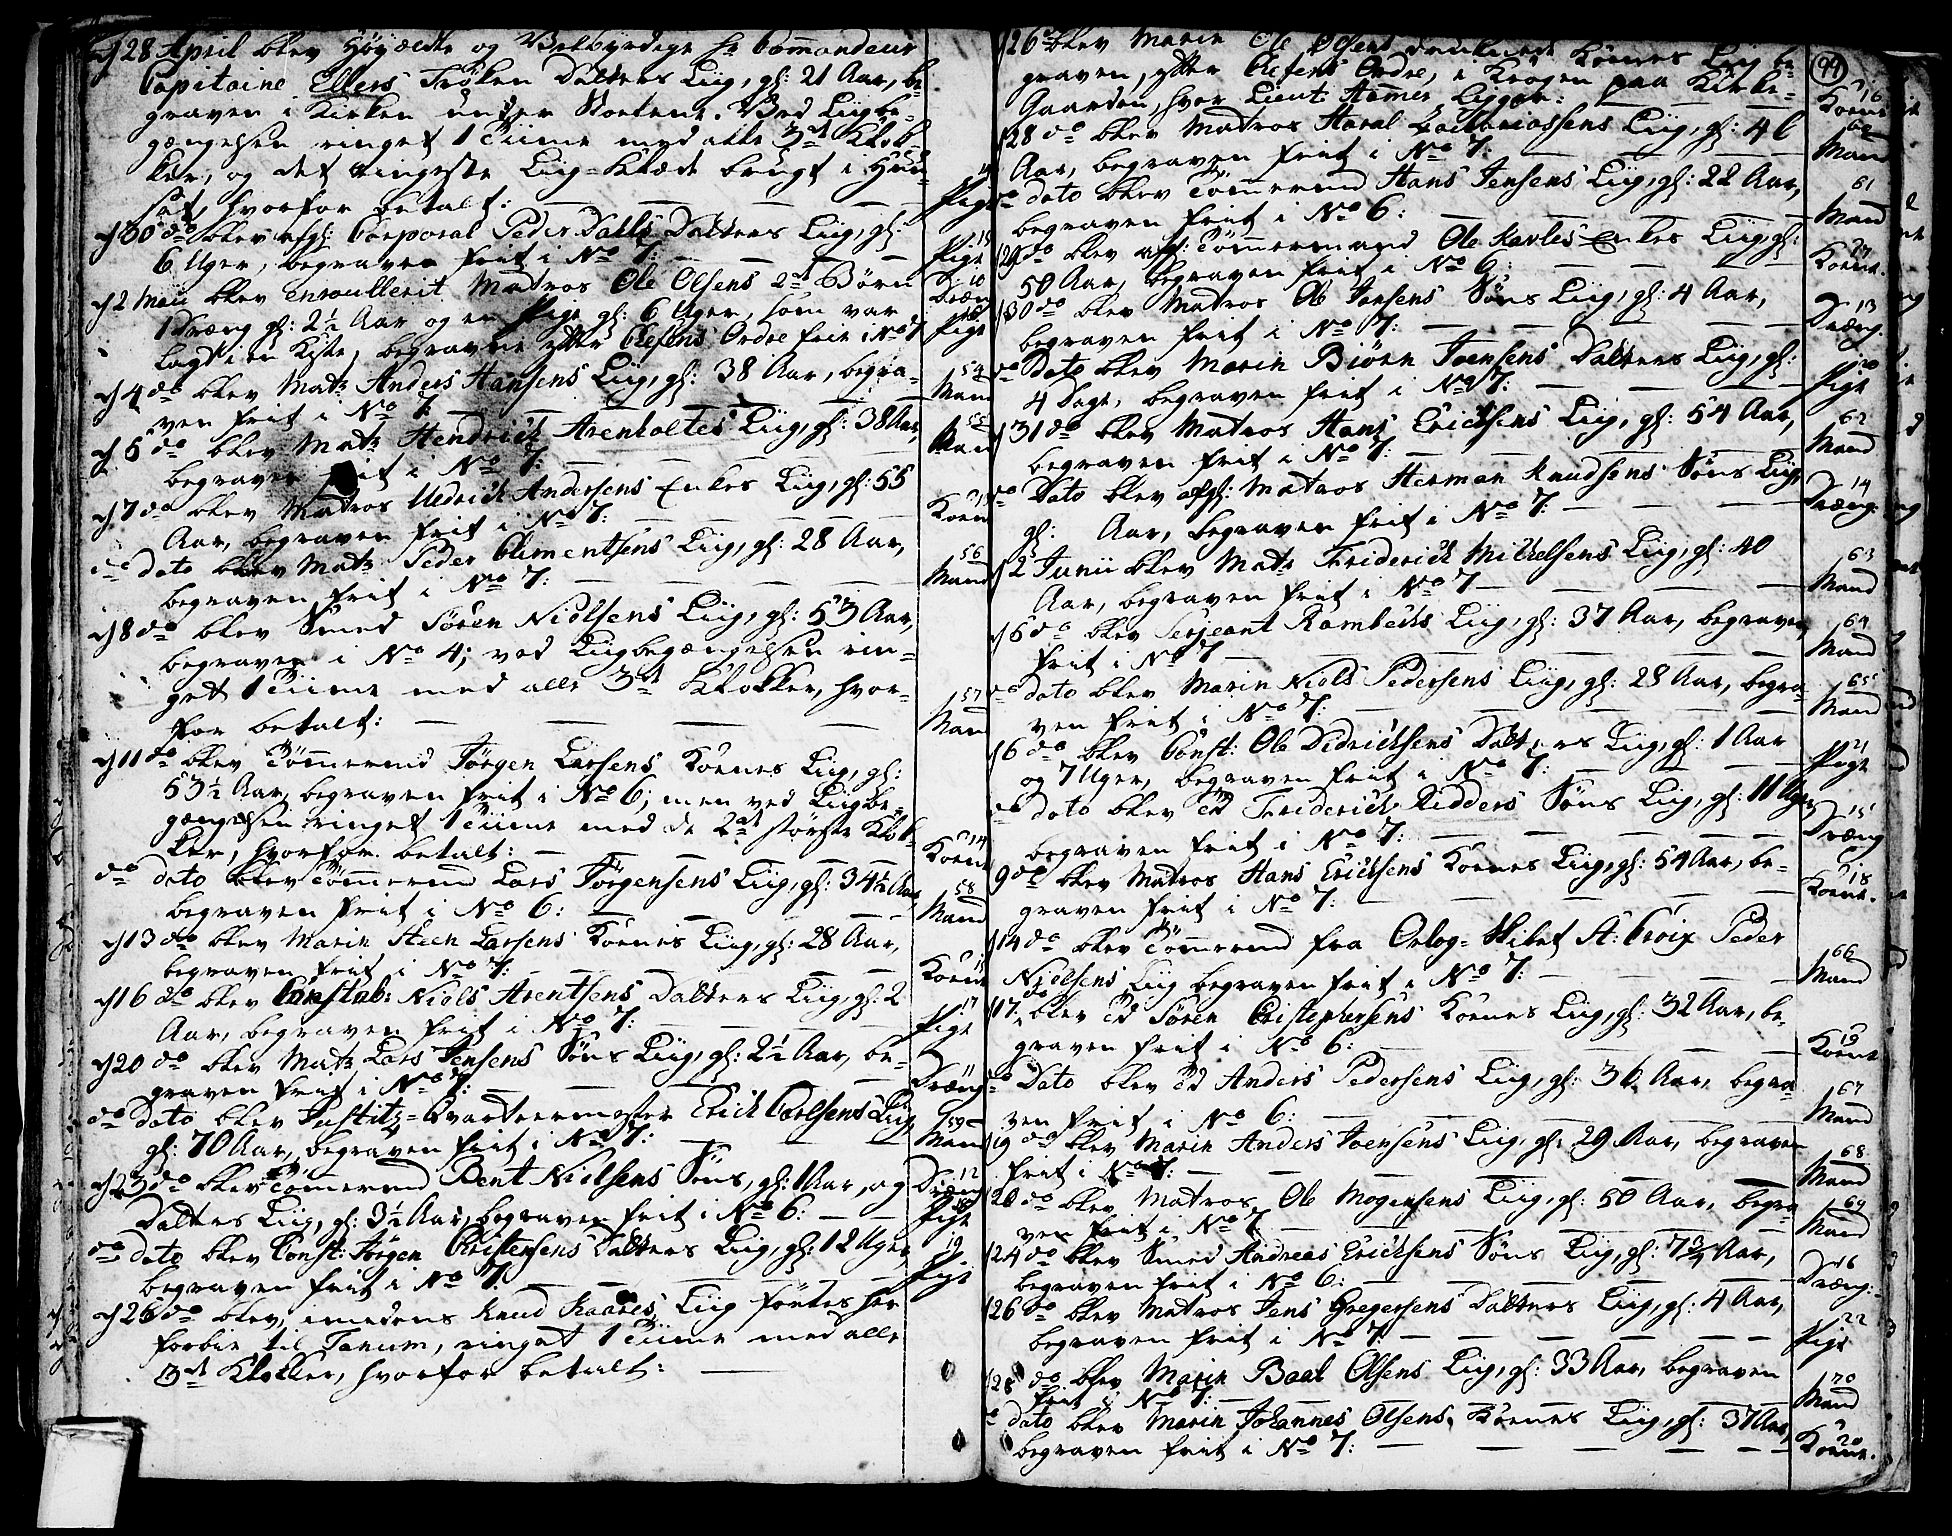 d 28 April blev Høyædle og Velbyrdige Hr Commandeur
Capitaine Ellers Frøken Datters Liig, gl: 21 Aar, be-
graven i Kirken under Stoelene. Ved Liigbe-
gængelsen ringet 1 Tiime med alle 3de Klok-
ker, og det ringeste Liig-Klæde brugt i Huu-
set, hvorfor betalt: Pige
d 30 do blev afgl: Corporal Peder Dalls Datters Liig, gl:
6 Uger, begraven frit i No 7: 15 Pige
d 2 Maii blev enroullerit Matros Ole Olsens 2de Børn
1 Dræng gl: 2½ Aar og en Pige gl: 6 Uger, som var 10 Dræng
lagt i en Kiste, begravne efter Chefens Ordre frie i No 7 16 Pige
d 4 do blev Matr Anders Hansens Liig, gl: 38 Aar, begra-
ven frit i No 7: 54 Mand
d 5 do blev Matr Hendrich Arenholtes Liig, gl: 38 Aar,
begraven frit i No 7: 55 Mand
d 7 do blev Matros Uldrich Andersens Enkes Liig, gl: 55
Aar, begraven frit i No 7: 13 Koene
do dato blev Matr Peder Clementsens Liig, gl: 28 Aar,
begraven frit i No 7: 56 Mand
d 8 do blev Smed Søren Nielsens Liig, gl: 53 Aar,
begraven i No 4; ved Liigbegængelsen rin-
get 1 Tiime med alle 3de Klokker, hvor-
for betalt: 57 Mand
d 11 do blev Tømmermd Jørgen Larsens Koenes Liig, gl:
53½ Aar, begraven frit i No 6; men ved Liigbe-
gængelsen ringet 1 Tiime med de 2de største Klok-
ker, hvorfor betalt: 14 Koene
do dato blev Tømmermd Lars Jørgensens Liig, gl: 34½ Aar
begraven frit i No 6: 58 Mand
d 13 do blev Marin Steen Larsens Koenes Liig, gl: 28 Aar,
begraven frit i No 7: 15 Koene
d 16 do blev Constab: Niels Arentsens Datters Liig, gl: 2
Aar, begraven frit i No 7: 17 Pige
d 20 do blev Matr Lars Jensens Søns Liig, gl: 2½ Aar, be-
graven frit i No 7: Dræng
do Dato blev Justitz-Qvarteermester Erich Carlsens Liig
gl: 70 Aar, begraven frit i No 7: 59 Mand
d 23 do blev Tømmermd Bent Nielsens Søns, gl: 1 Aar, og 12 Dræng
Datters Liig, gl: 3½ Aar, begraven frit i No 6: 18 Pige
do dato blev Const: Jørgen Christensens Datters Liig, gl: 12 Uger,
begraven frit i No 7: 19 Pige
d 26 do blev, imedens Knud Kaares Liig førtes her
forbie til Tanum, ringet 1 Tiime med alle
3de Klokker, hvorfor betalt:
99
d 26 blev Marin Ole Olsens druknede Koenes Liig be-
graven, efter Chefens Ordre, i Krogen paa Kirke-
Gaarden, hvor Lieut: Hammer Ligger: 16 Koene
d 28 do blev Matros Haral Zachariassens Liig, gl: 46
Aar, begraven frit i No 7: 60 Mand
do dato blev Tømmermd Hans Jensens Liig, gl: 22 Aar,
begraven frit i No 6: 61 Mand
d 29 do blev afgl: Tømmermand Ole Karles Enkes Liig, gl:
50 Aar, begraven frit i No 6: 17 Koene.
d 30 do blev Matros Ole Jensens Søns Liig, gl: 4 Aar,
begraven frit i No 7: 13 Dræng.
do Dato blev Marin Biørn Joensens Datters Liig, gl:
4 Dage, begraven frit i No 7: 20 Pige
d 31 do blev Matros Hans Erichsens Liig, gl: 54 Aar,
begraven frit i No 7: 62 Mand
do Dato blev afgl: Matros Herman Knudsens Søns Liig
gl: Aar, begraven frit i No 7: 14 Dræng.
d 2 Junii blev Matr Friderich Michelsens Liig, gl: 40
Aar, begraven frit i No 7 63 Mand
d 6 do blev Serjeant Rambechs Liig, gl: 37 Aar, begraven
frit i No 7 64 Mand
do dato blev Marin Niels Pedersens Liig, gl: 28 Aar, begra-
ven frit i No 7: 65 Mand
d 6 do blev Const: Ole Didrichsens Datters Liig, gl: 1 Aar
og 7 Uger, begraven frit i No 7: 21 Pige
do dato blev Friderich Ridders Søns Liig, gl: 11 Uger,
begraven frit i No 7: 15 Dræng
9 do blev Matros Hans Erichsens Koenes Liig, gl: 54 Aar, be-
graven frit i No 7: 18 Koene.
d 14 do blev Tømmermd fra Orlog-Skibet St: Croix Peder
Nielsens Liig begraven frit i No 7: 66 Mand
d 17 do blev Søren Christophersens Koenes Liig, gl: 32 Aar, be-
graven frit i No 6: 19 Koene
do Dato blev Anders Pedersens Liig, gl: 36 Aar, begra-
ven frit i No 6: 67 Mand
d 19 do blev Marin Anders Joensens Liig, gl: 29 Aar, begraven
frit i No 7: 68 Mand
d 20 do blev Matros Ole Mogensens Liig, gl: 50 Aar, begra-
ven frit i No 7 69 Mand
d 24 do blev Smed Andreas Erichsens Søns Liig, gl: 7¾ Aar,
begraven frit i No 6: 16 Dræng.
d 26 do blev Matros Jens Gregersens Datters Liig, gl: 4 Aar,
begraven frit i No 7 22 Pige
d 28 do blev Marin Baal Olsens Liig, gl: 33 Aar, begraven
frit i No 7: 70 Mand
do dato blev Marin Johannes Olsens Koenes Liig, gl: 37 Aar,
begraven frit i No 7: 20 Koene.